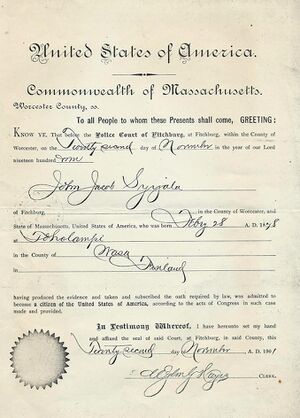 United States of America.
Commonwealth of Massachusetts.
Worcester County, ss.
To all People to whom these Presents shall come, GREETING:
KNOW YE, That before the Police Court of Fitchburg, at Fitchburg, within the County of
Worcester, on the Twenty second day of November in the year of our Lord
nineteen hundred one
John Jacob Syrjala
of Fitchburg, in the County of Worcester, and
State of Massachusetts, United States of America, who was born Feby 28 A. D. 1878
at Toholampi
in the County of Wasa
in Finland
having produced the evidence and taken and subscribed the oath required by law, was admitted to
become a citizen of the United States of America, according to the acts of Congress in such case
made and provided.
In Testimony Whereof, I have hereunto set my hand
and affixed the seal of said Court, at Fitchburg, in said County, this
Twenty second day November A. D. 1901
CLERK.